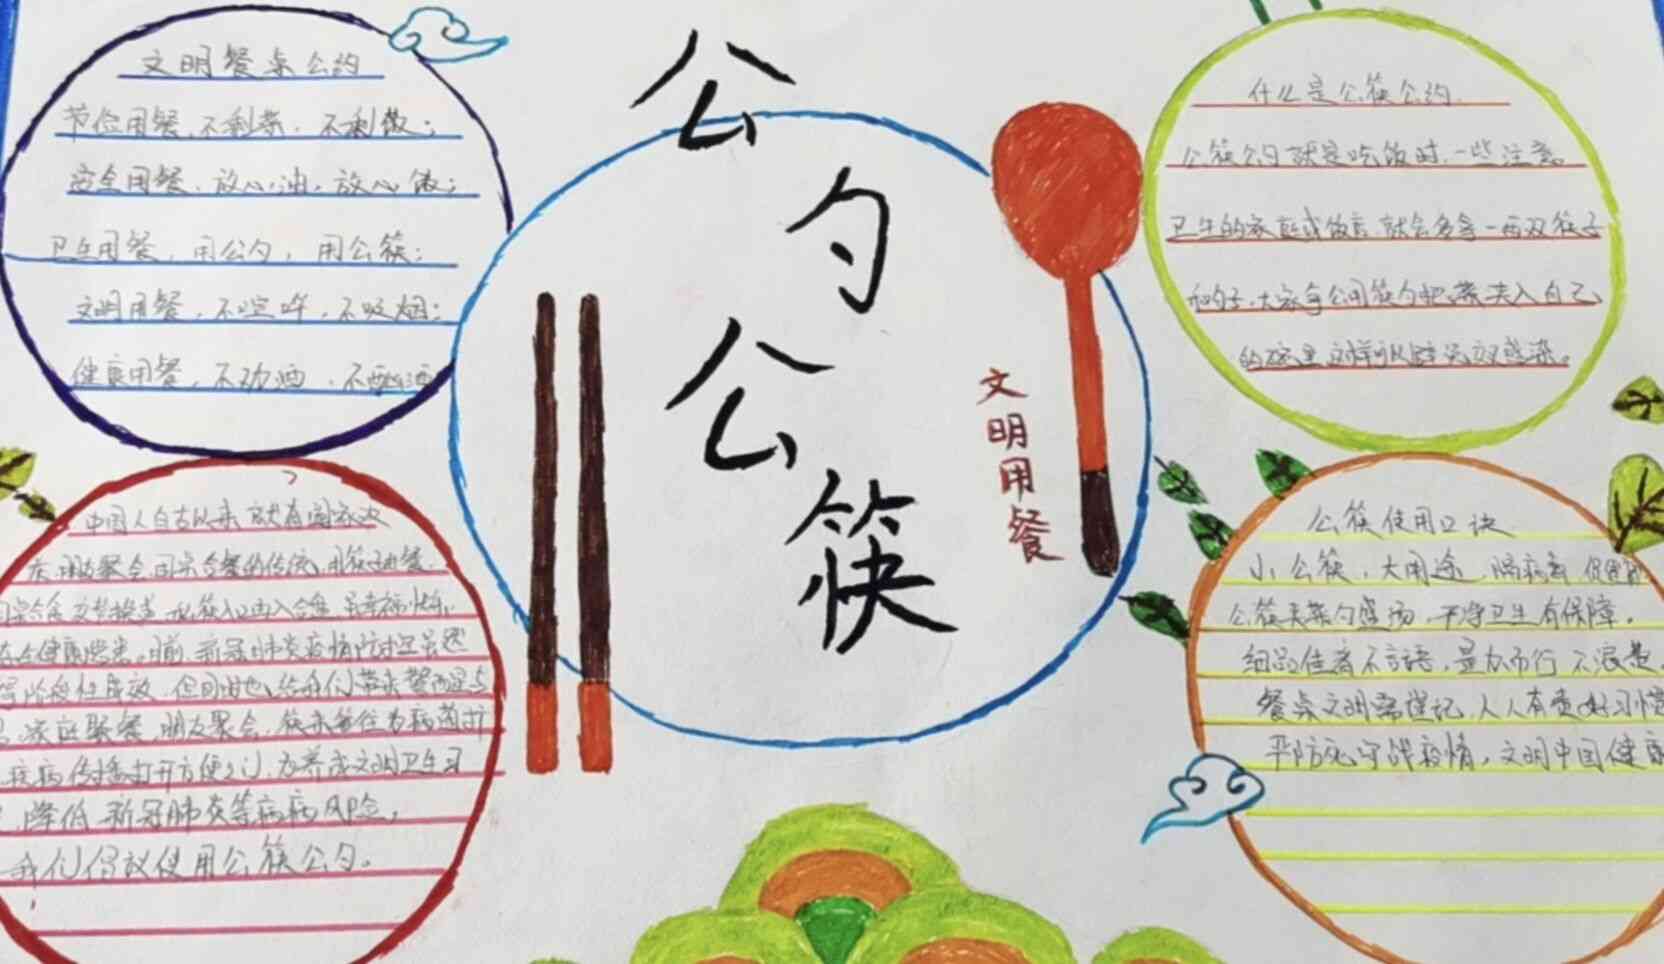 文明餐桌公约
节俭用餐,不剩菜,不剩饭;
安全用餐,放心油,放心饭;
卫生用餐,用公勺,用公筷;
文明用餐,不喧哗,不吸烟;
健康用餐,不劝酒,不酗酒
公
勺
公
筷
文
明
用
餐
什么是公筷公约
公筷公勺就是吃饭时,一些注意
卫生的家庭或饭店,就会多拿一两双筷子
和勺子,大家每公用筷勺把菜夹入自己
的碗里
中国人自古以来就有阖家欢
庆,朋友聚会,同桌合餐的传统,用筷子进餐
健康隐患。目前,新冠肺炎疫情防控虽然
阶段性成效,但同时也给我们带来警醒与
家庭聚餐,朋友聚会,筷来箸往为病菌打
疾病传播打开方便之门,为养成文明卫生习
降低新冠肺炎等疾病风险,
我们倡议使用公筷公勺。
公筷使用口诀
小公筷,大用途,隔病毒
公筷夹菜勺盛汤,干净卫生有保障。
细品佳肴不言语,量力而行不浪费。
餐桌文明需谨记,人人有责好习惯
严防死守战疫情,文明中国健康